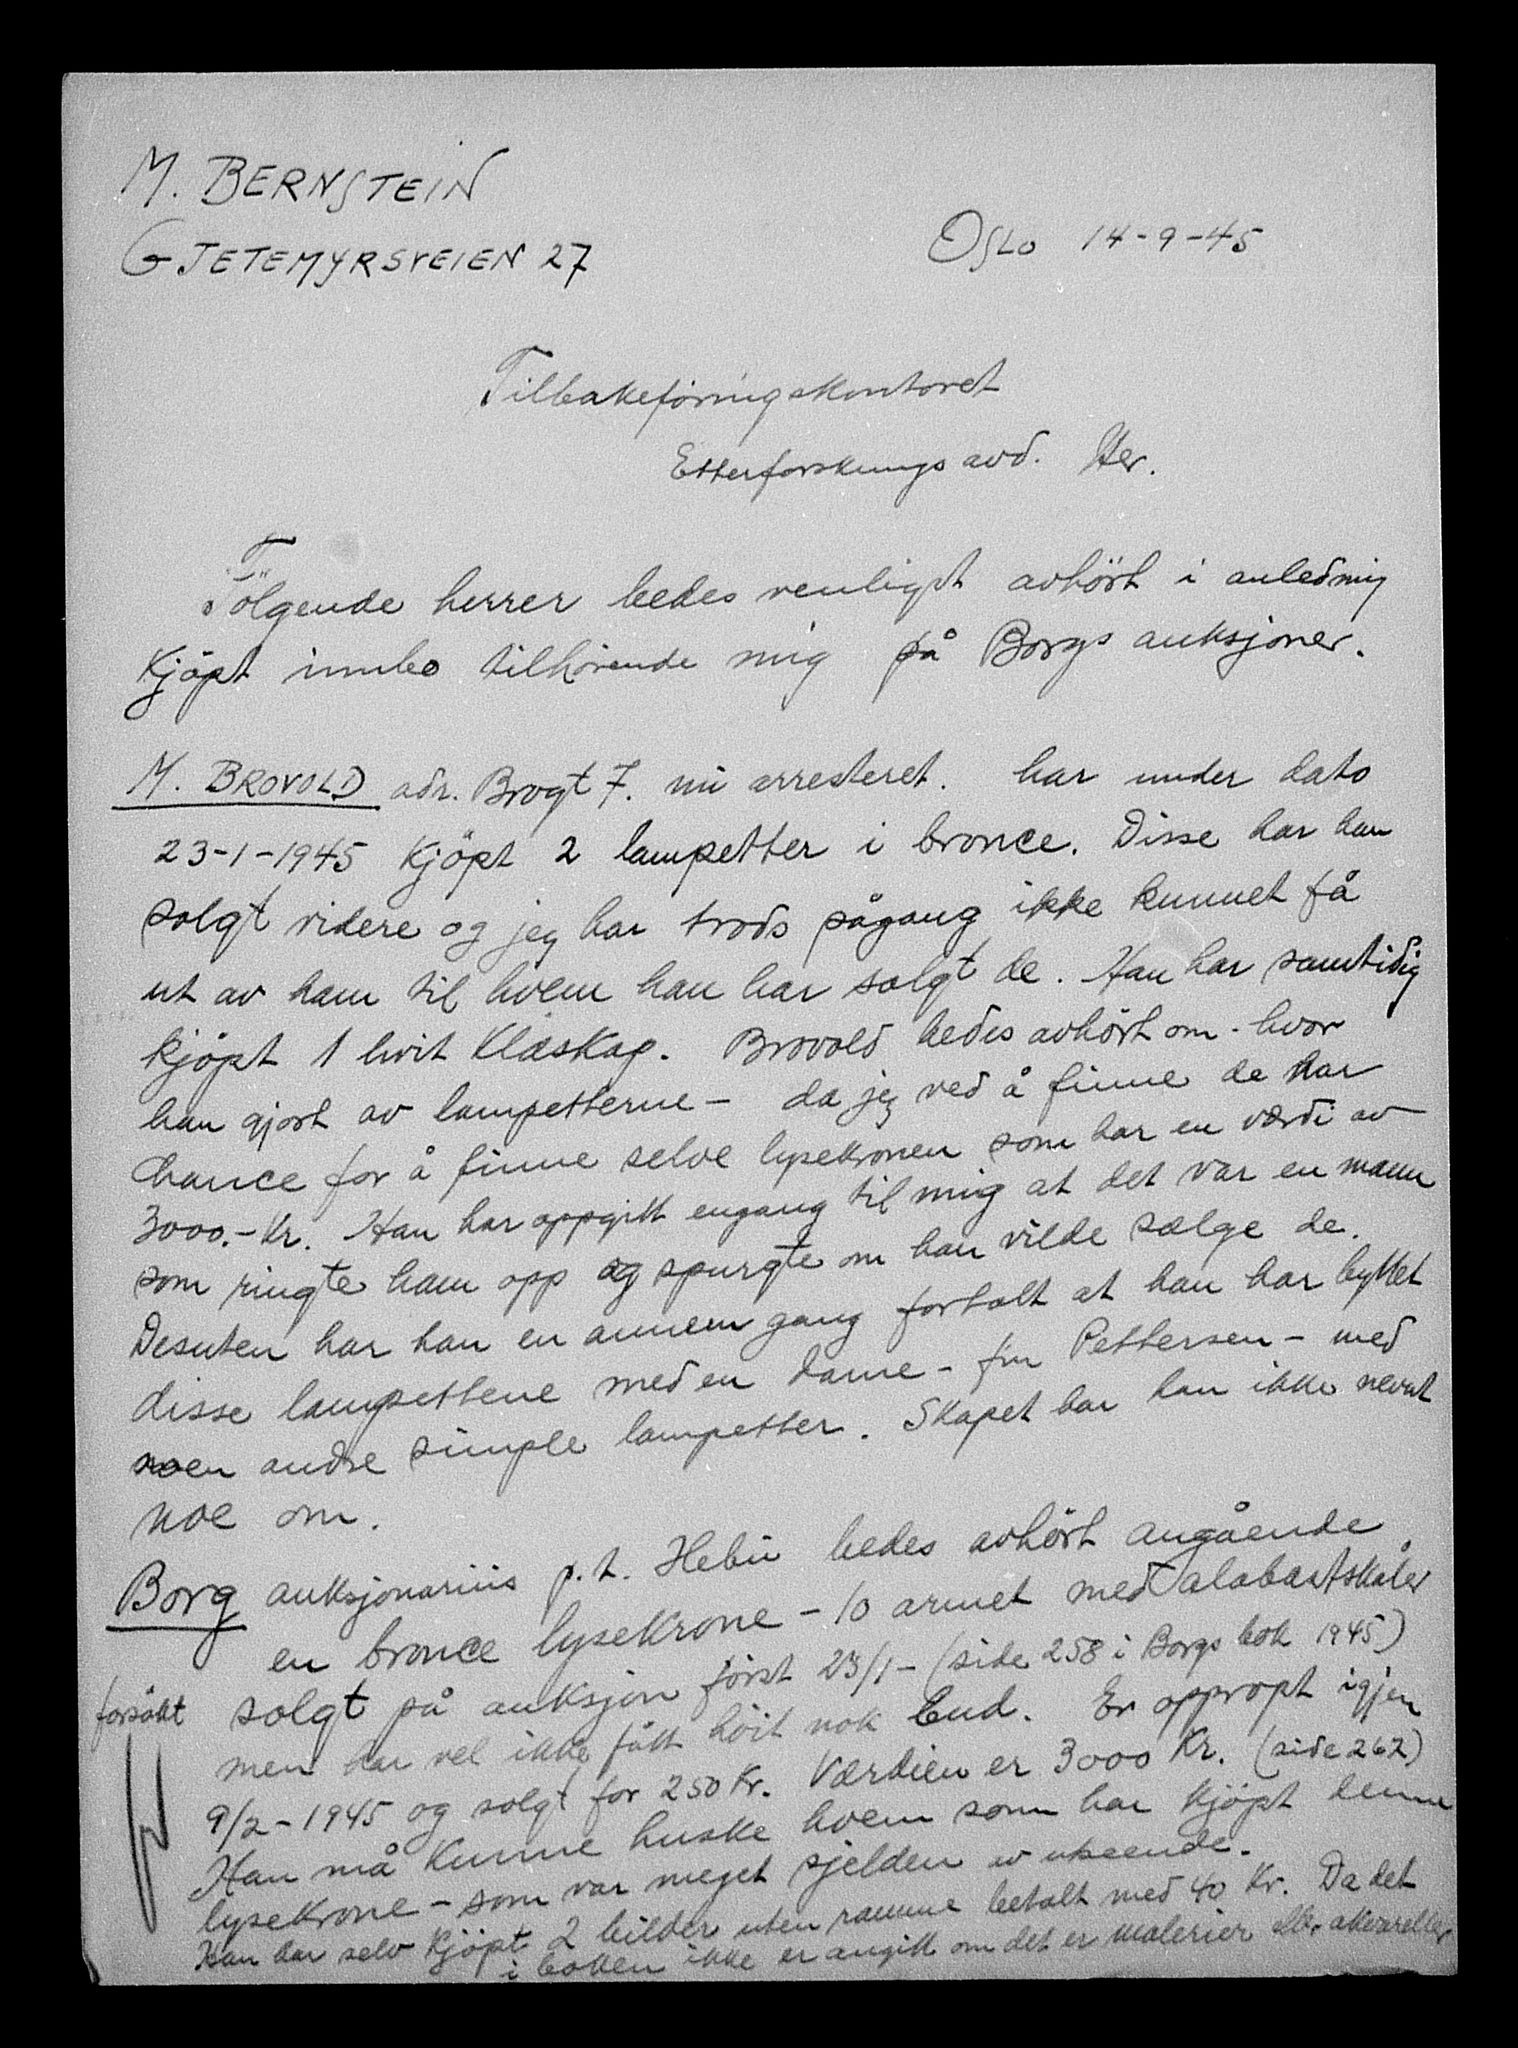 M. BERNSTEIN
GJETEMYRSVEIEN 27
OSLO 14-9-45
Tilbakeföringskontoret
Etterforskningsavd. Her.
Fölgende herrer bedes venligst avhört i anledning
Kjöpt innbo tilhörende mig på Borgs auksjoner.
M. BROVOLD adr. Brogt 7. nu arresteret. har under dato
23-1-1945 Kjöpt 2 lampetter i bronce. Disse har han
solgt videre og jeg har trods pågang ikke kunnet få
ut av ham til hvem han har solgt de. Han har samtidig
kjöpt 1 hvit Klæskap. Brovold bedes avhört om - hvor
han gjort av lampetterne - da jeg ved å finne de har
Chance for å finne selve lysekronen som har en værdi av
3000.- Kr. Han har oppgitt engang til mig at det var en mann
som ringte ham opp og spurgte om han vilde sælge de.
Desuten har han en annen gang fortalt at han har byttet
disse lampettene med en dame - fru Pettersen - med
noen andre simple lampetter. Skapet har han ikke nevnt
noe om.
Borg auksjonarius p.t. Hebu bedes avhört angående
en bronce lysekrone - 10 armet med alabastskåler
forsökt solgt på auksjon först 23/1 - (side 258 i Borgs bok 1945)
men har vel ikke fått höit nok bud. Er oppropt igjen
9/2 - 1945 og solgt for 250 Kr. Værdien er 3000 Kr. (side 262)
Han må Kunne huske hvem som har kjöpt denne
lysekrone - som var meget sjelden av utseende.
Han har selv Kjöpt 2 bilder uten ramme betalt med 40 Kr. Da det
i boken ikke er angitt om det er malerier ell. akvareller